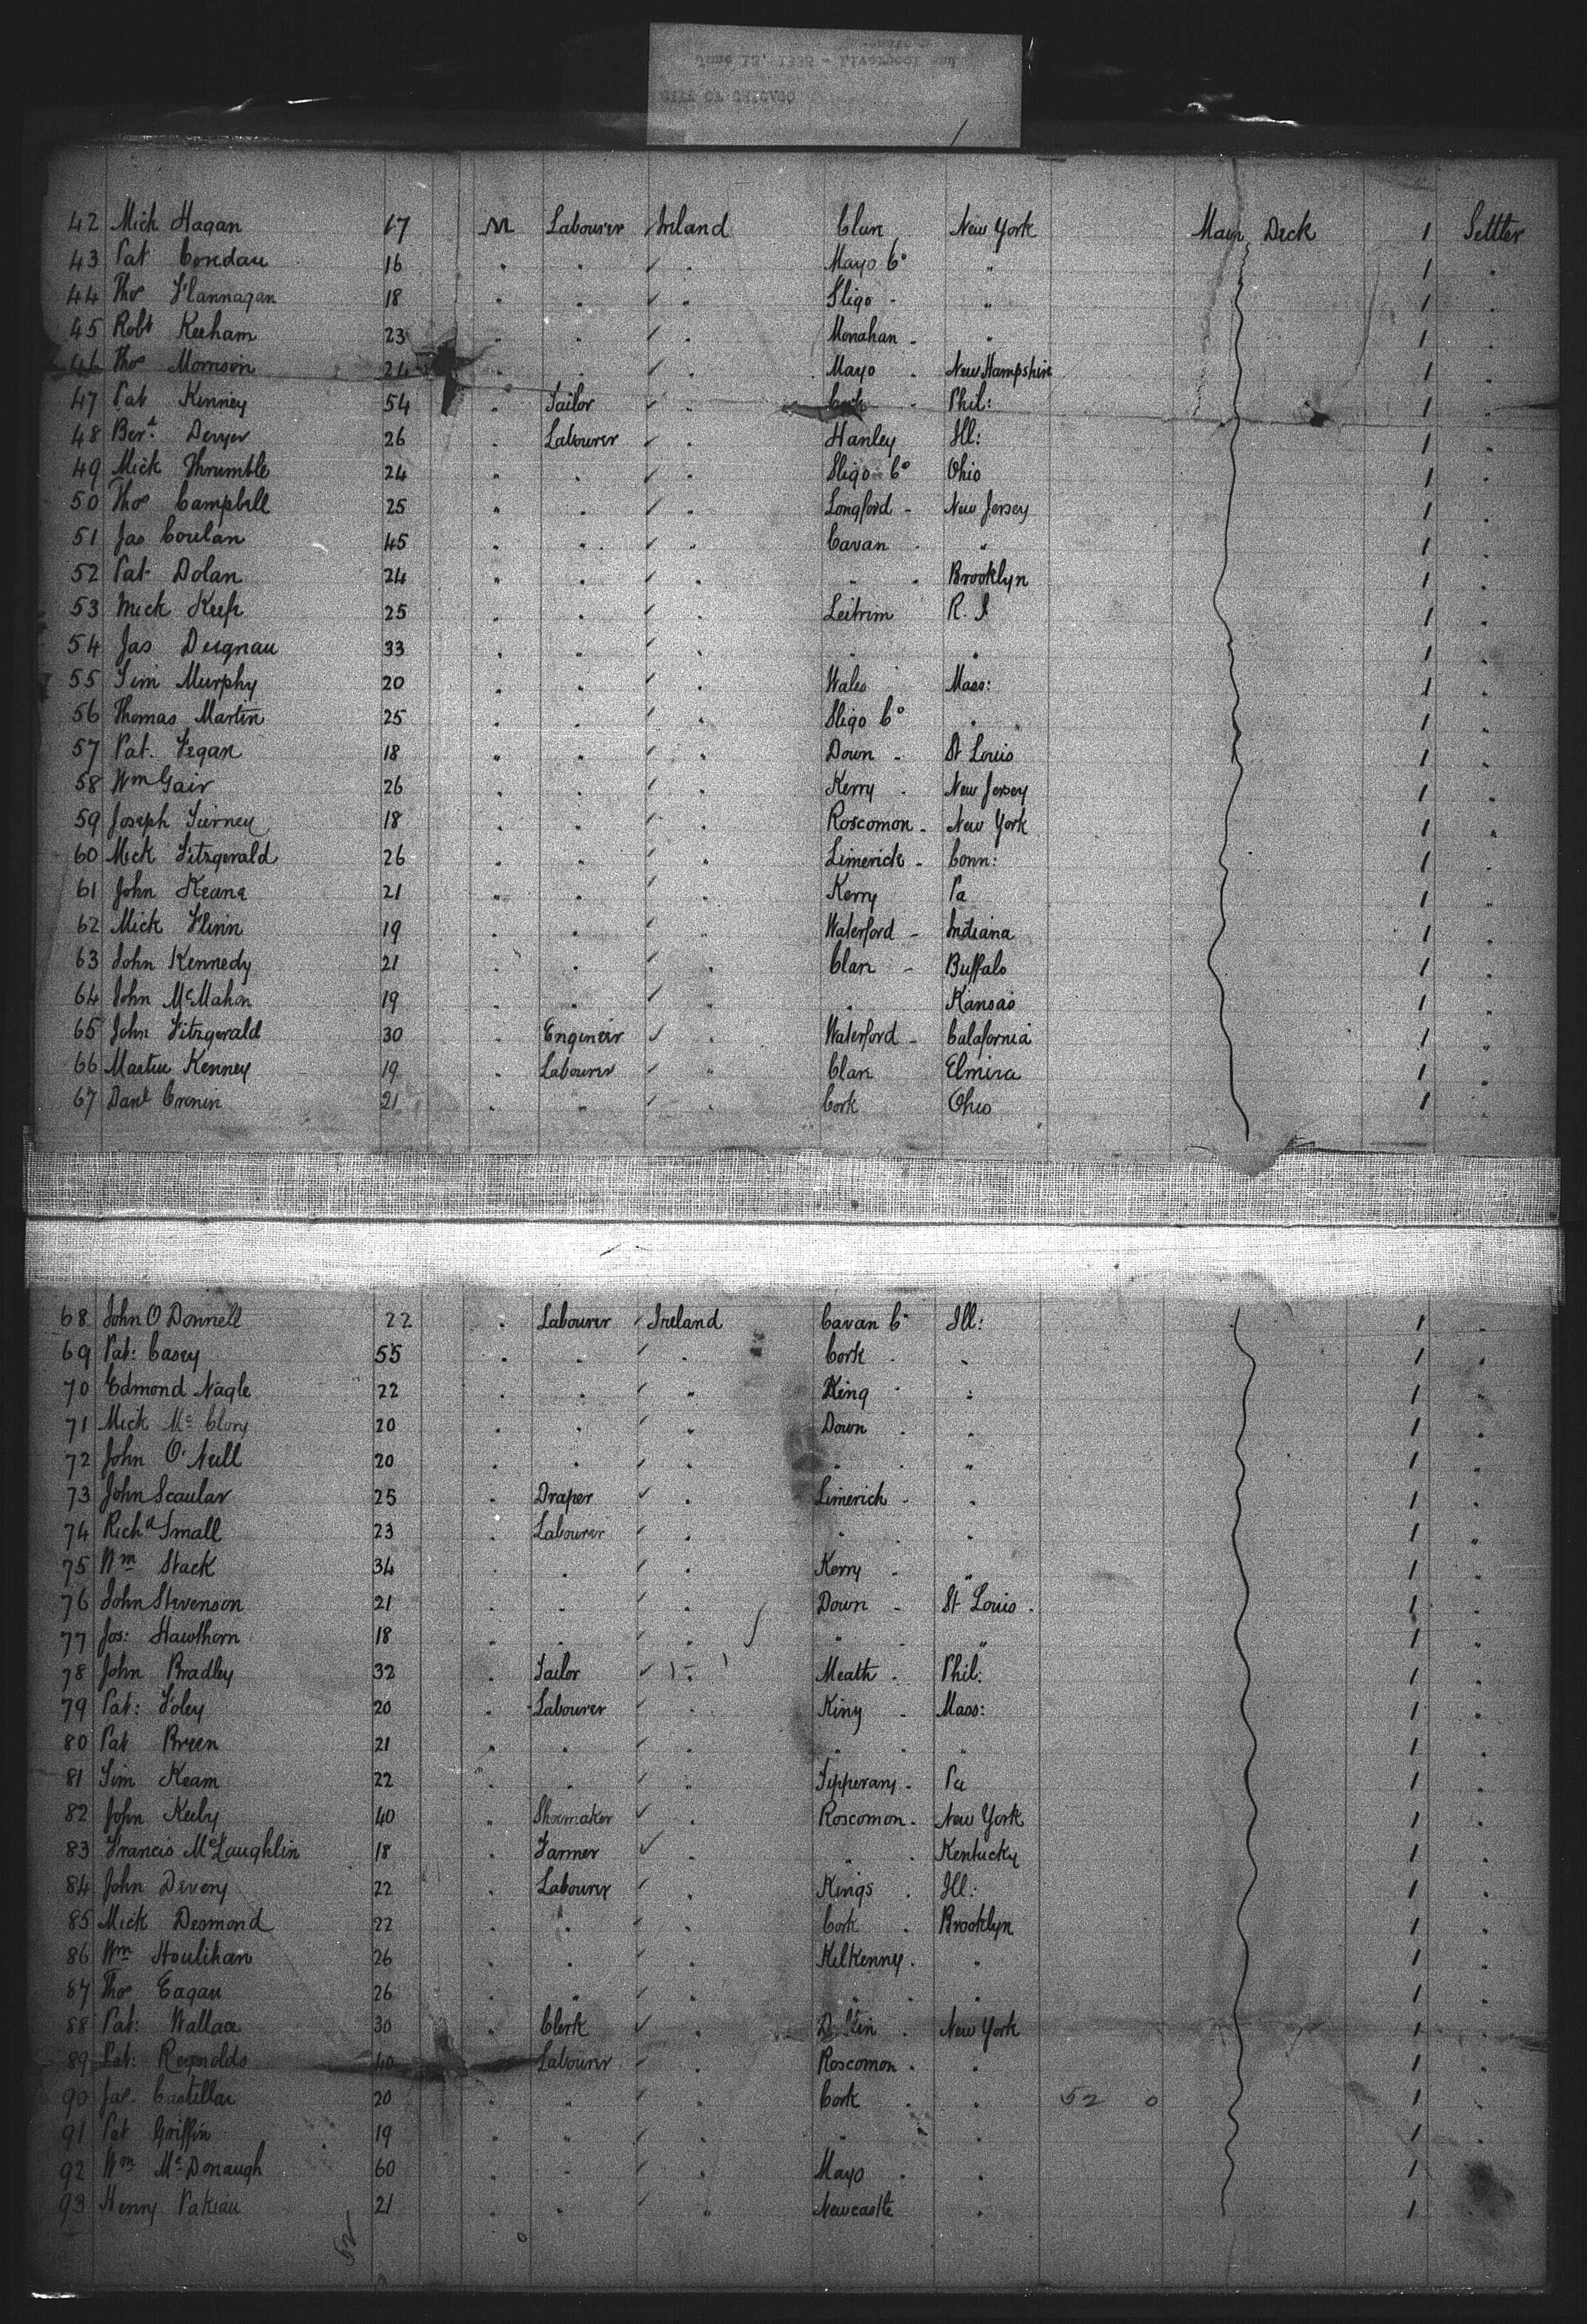 CITY OF CHICAGO
42 Mich Hagan 67 M Labourer Ireland Clare New York Main Deck 1 Settler
43 Pat Condau 16 " " ✓ " Mayo Co " 1 "
44 Thos Flannagan 18 " " ✓ " Sligo - " 1 "
45 Robt Keeham 23 " " ✓ " Monahan - " 1 "
46 Thos Morrison 24 " " ✓ " Mayo " New Hampshire 1 "
47 Pat Kenney 54 " Tailor ✓ " Cork " Phil: 1 "
48 Berd Dwyer 26 " Labourer ✓ " Hanley Ill: 1 "
49 Mick Thrumble 24 " " ✓ " Sligo Co Ohio 1 "
50 Thos Campbell 25 " " ✓ " Longford - New Jersey 1 "
51 Jas Coulan 45 " " ✓ " Cavan " " 1 "
52 Pat Dolan 24 " " ✓ " " " Brooklyn 1 "
53 Mick Keefe 25 " " ✓ " Leitrim R. I 1 "
54 Jas Duignau 33 " " ✓ " " " 1 "
55 Tim Murphy 20 " " ✓ " Wales Mass: 1 "
56 Thomas Martin 25 " " ✓ " Sligo Co " 1 "
57 Pat. Fegan 18 " " ✓ " Down - St Louis 1 "
58 Wm Gair 26 " " ✓ " Kerry - New Jersey 1 "
59 Joseph Tierney 18 " " ✓ " Roscomon - New York 1 "
60 Mick Fitzgerald 26 " " ✓ " Limerick - Conn: 1 "
61 John Keane 21 " " ✓ " Kerry Pa 1 "
62 Mick Flinn 19 " " ✓ " Waterford - Indiana 1 "
63 John Kennedy 21 " " ✓ " Clare - Buffalo 1 "
64 John McMahon 19 " " ✓ " " Kansas 1 "
65 John Fitzgerald 30 " Engineer ✓ " Waterford - Calafornia 1 "
66 Martin Kenney 19 " Labourer ✓ " Clare Elmira 1 "
67 Danl Cronin 21 " " ✓ " Cork Ohio 1
68 John O Donnell 22 " Labourer ✓ Ireland Cavan Co Ill: 1 "
69 Pat: Casey 55 " " ✓ " Cork " " 1 "
70 Edmond Nagle 22 " " ✓ " King " " 1 "
71 Mick Mc Clory 20 " " ✓ " Down " " 1 "
72 John O'Neill 20 " " ✓ " " " 1 "
73 John Scaular 25 " Draper ✓ " Limerich - " 1 "
74 Richd Small 23 " Labourer ✓ " " " 1 "
75 Wm Stack 34 " " ✓ " Kerry - " 1 "
76 John Stevenson 21 " " ✓ " Down - St Louis. 1 "
77 Jos: Hawthorn 18 " " ✓ " " " 1 "
78 John Bradley 32 " Tailor ✓ " Meath - Phil: 1 "
79 Pat: Foley 20 " Labourer ✓ " King - Mass: 1 "
80 Pat Breen 21 " " ✓ " " " 1 "
81 Tim Keam 22 " " ✓ " Tipperary - Pa 1 "
82 John Keely 40 " Shoemaker ✓ " Roscomon - New York 1 "
83 Francis McLaughlin 18 " Farmer ✓ " " " Kentucky 1 "
84 John Divery 22 " Labourer ✓ " Kings " Ill: 1 "
85 Mick Desmond 22 " " ✓ " Cork " Brooklyn 1 "
86 Wm Houlihan 26 " " ✓ " Kilkenny - " 1 "
87 Thos Eagan 26 " " ✓ " " " " 1 "
88 Pat: Wallace 30 " Clerk ✓ " New York 1 "
89 Pat: Reynolds 40 " Labourer ✓ " Roscomon " " 1 "
90 Jas Castellar 20 " " ✓ " Cork " " 52 0 1 "
91 Pat Griffin 19 " " ✓ " " " 1 "
92 Wm McDonaugh 60 " " ✓ " Mayo " " 1 "
93 Henry Pakiau 21 " " ✓ " Newcastle " 1
52